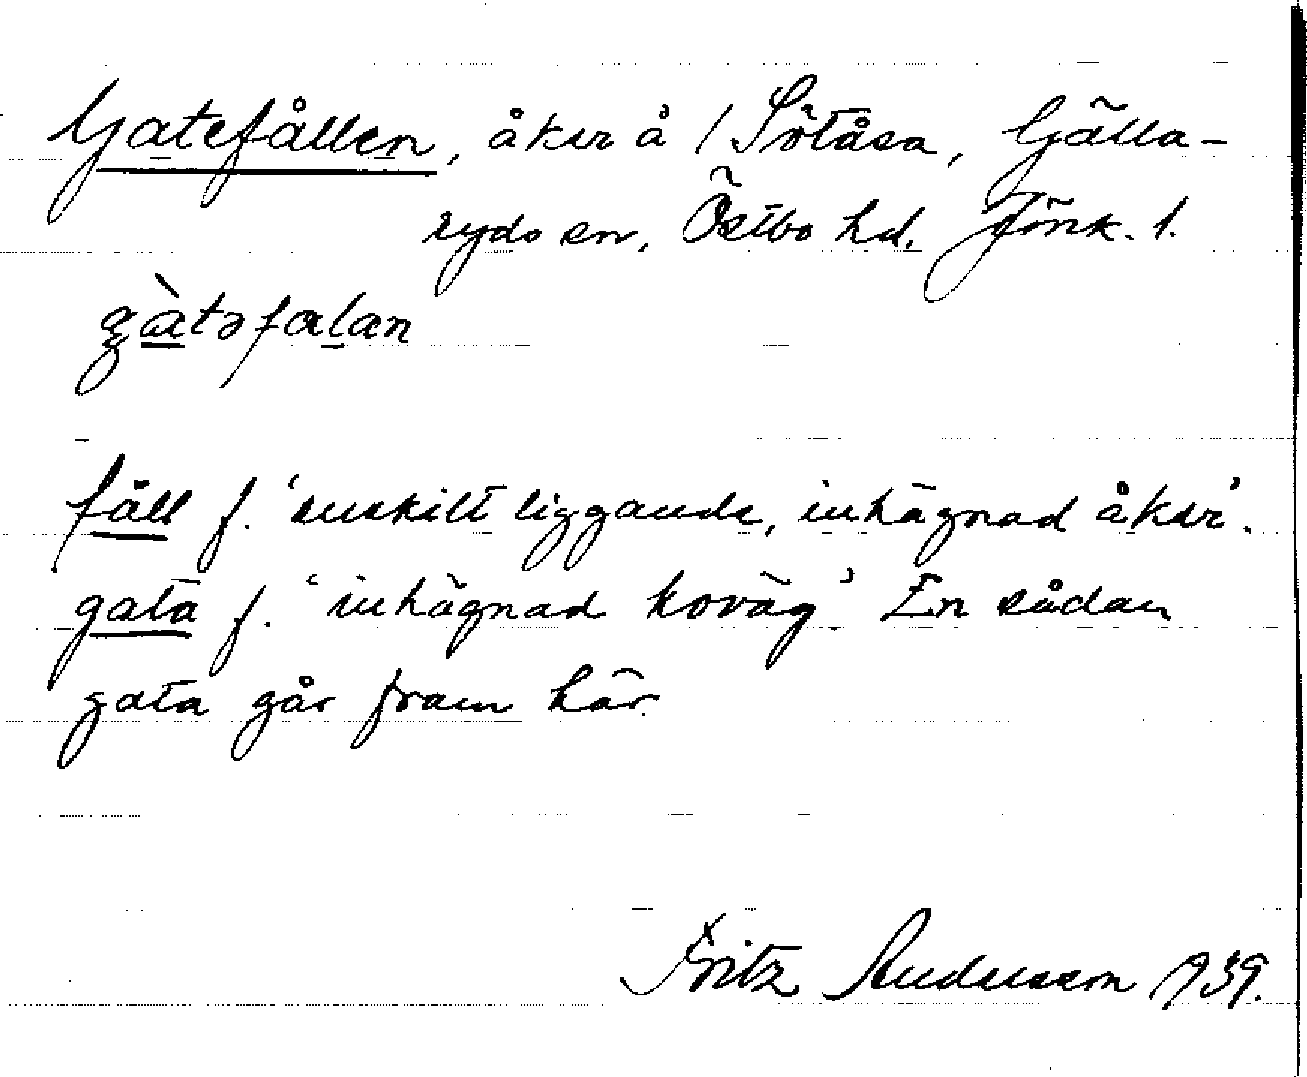 Gatefållen, åker å 1 Sötåsa, Gälla-
ryds sn, Östbo hd. Jönk. l.
gàtəfalan
fåll f. 'enskilt liggande, inhägnad åker'.
gata f. 'inhägnad koväg'. En sådan
gata går fram här.
Fritz Andersson 1939.